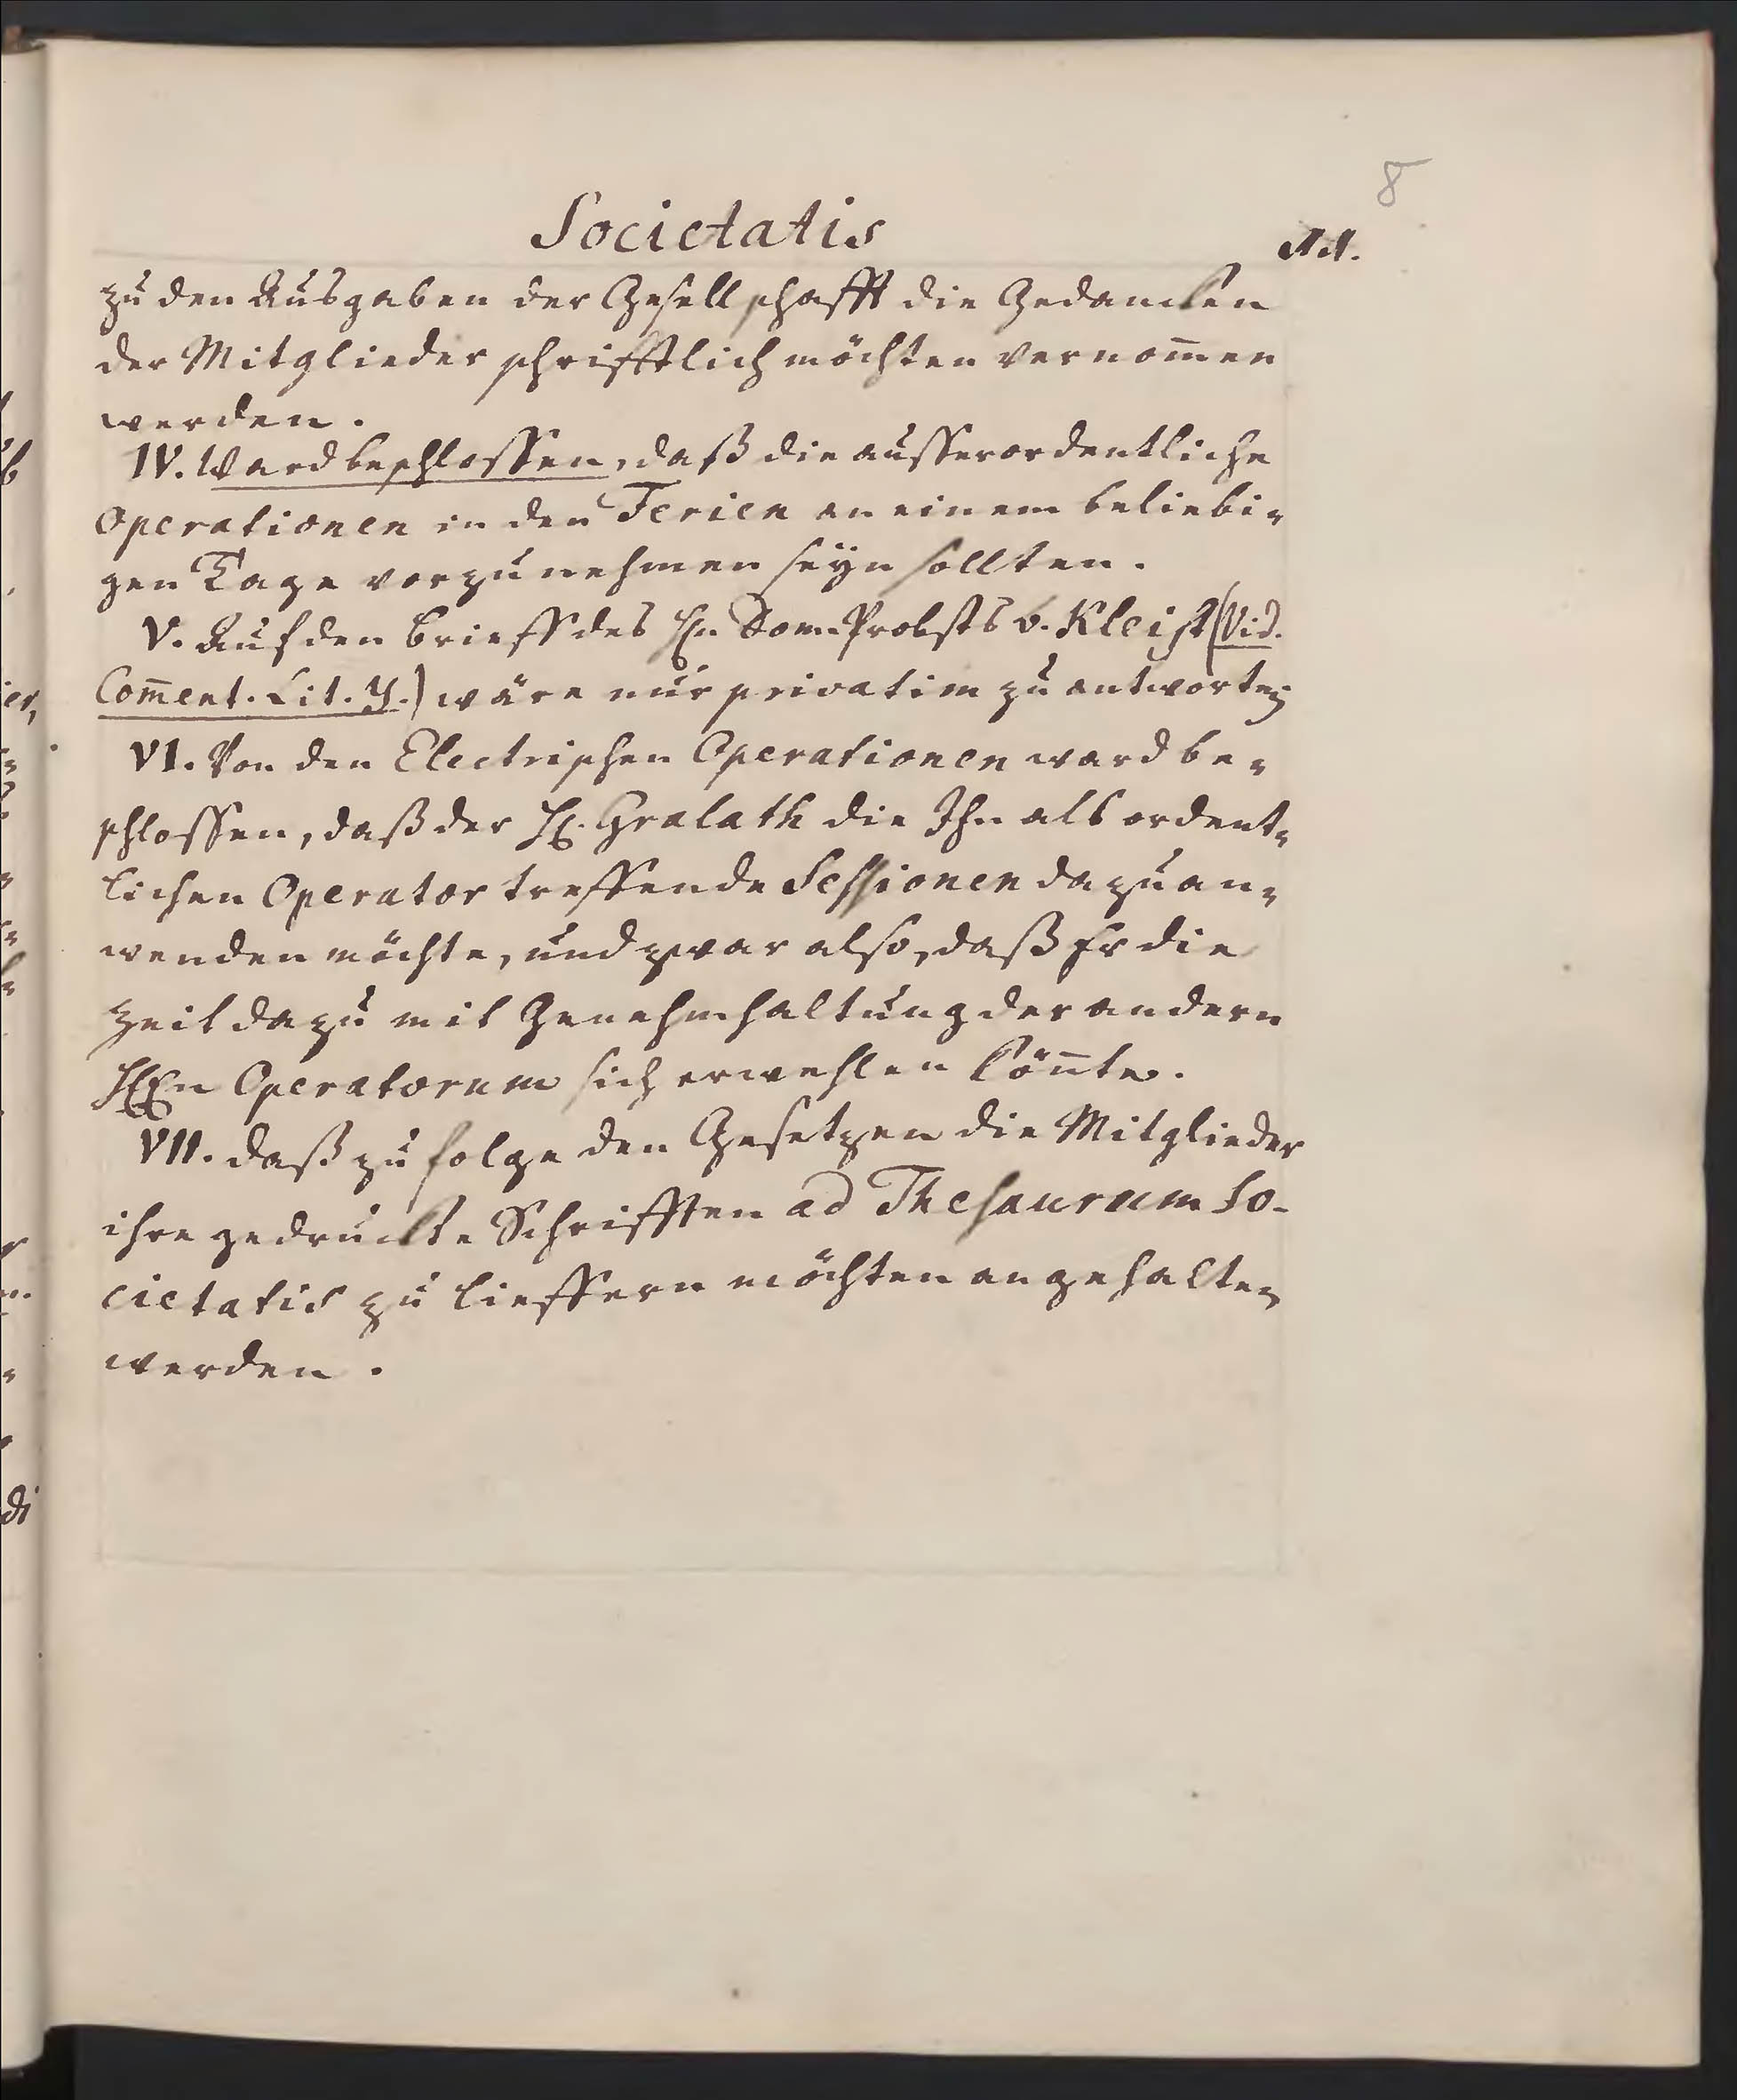 8
Societatis
zu den Ausgaben der Gesellschafft die Gedancken
der Mitglieder schrifftlich möchten vernom̅en
werden.
IV. Ward beschlossen, daß die ausserordentliche
Operationen in den Ferien an einem beliebi-
gen Tage vorzunehmen seyn sollten.
V. Auf den Brieff des Hn Dom-Probsts v. Kleist (Vid.
Com̅ent. Lit. Y.) wäre nur privatim zu antworten
VI. Von den Electrischen Operationen ward be-
schlossen, daß der H. Gralath die Ihn als ordent-
lichen Operator treffende Sessionen dazu an-
wenden möchte, und zwar also, daß Er die
Zeit dazu mit Genehmhaltung der andern
HEn Operatorum sich erwehlen kön̅te.
VII. daß zu folge den Gesetzen die Mitglieder
ihre gedruckte Schrifften ad Thesaurum So-
cietatis zu lieffern möchten angehalten
werden.